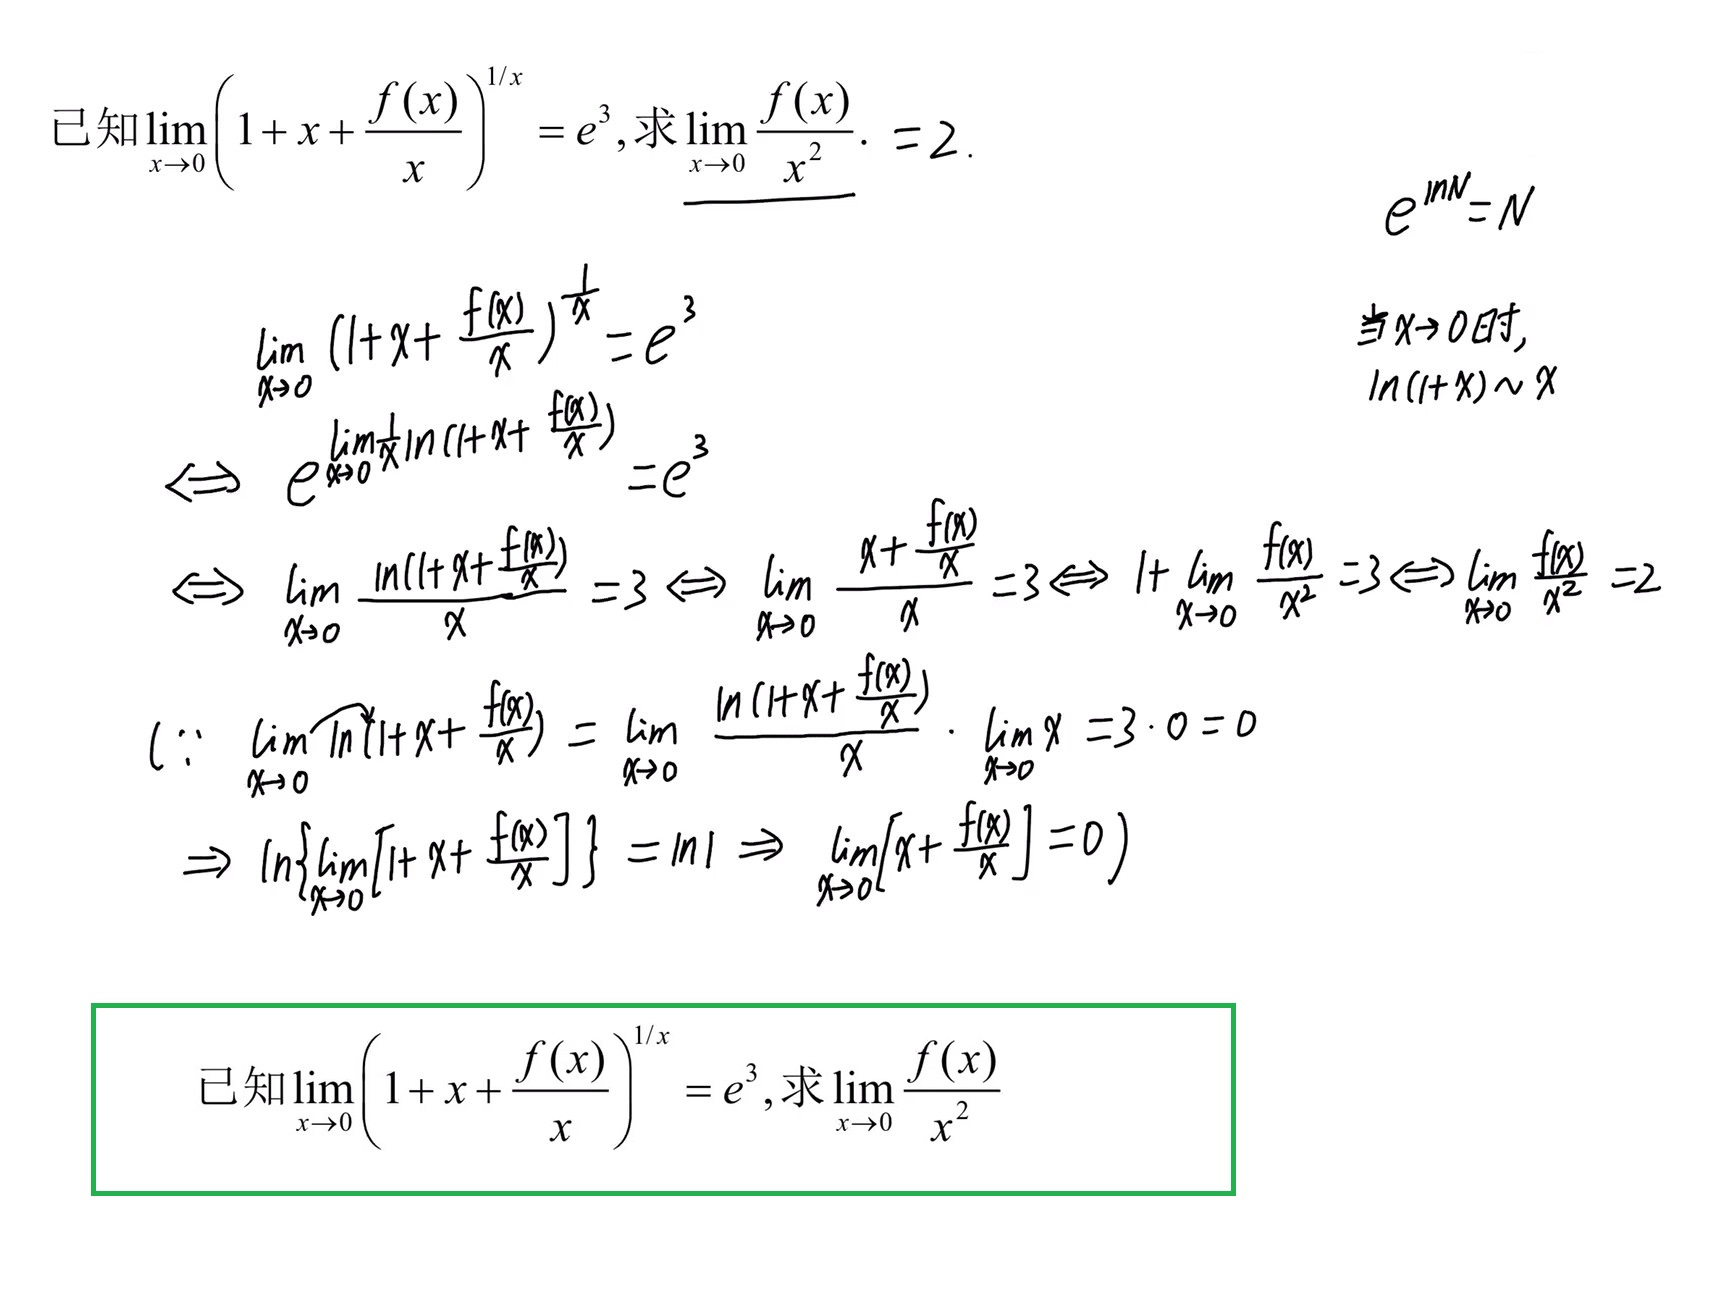 已知 lim_{x→0} (1 + x + f(x)/x)^{1/x} = e^3, 求 lim_{x→0} f(x)/x^2. = 2.
e^{lnN} = N
当x→0时,
ln(1+x) ~ x
lim_{x→0} (1+x+ f(x)/x)^{1/x} = e^3
⇔ e^{lim_{x→0} 1/x ln(1+x+ f(x)/x)} = e^3
⇔ lim_{x→0} ln(1+x+ f(x)/x) / x = 3 ⇔ lim_{x→0} (x+ f(x)/x) / x = 3 ⇔ 1+ lim_{x→0} f(x)/x^2 = 3 ⇔ lim_{x→0} f(x)/x^2 = 2
(∵ lim_{x→0} ln(1+x+ f(x)/x) = lim_{x→0} ln(1+x+ f(x)/x) / x · lim_{x→0} x = 3·0 = 0
⇒ ln{lim_{x→0} [1+x+ f(x)/x]} = ln1 ⇒ lim_{x→0} [x+ f(x)/x] = 0)
已知 lim_{x→0} (1 + x + f(x)/x)^{1/x} = e^3, 求 lim_{x→0} f(x)/x^2